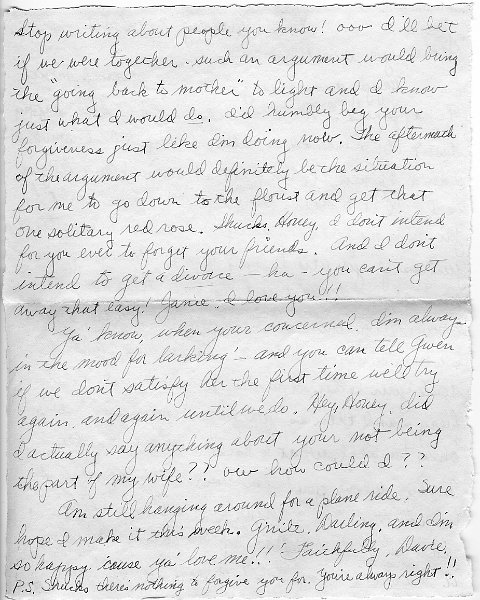 Stop writing about people you know! ooo I'll bet
if we were together such an argument would bring
the "going back to mother" to light and I know
just what I would do. I'd humbly beg your
forgiveness just like I'm doing now. The aftermath
of the argument would definitely be the situation
for me to go down to the florist and get that
one solitary red rose. Shucks, Honey, I don't intend
for you ever to forget your friends. And I don't
intend to get a divorce - ha - you can't get
away that easy! Janie, I love you!!
Ya' know, when your concerned, I'm always
in the mood for larking - and you can tell Gwen
if we don't satisfy her the first time we'll try
again, and again until we do. Hey, Honey, did
I actually say anything about your not being
the part of my wife?? ow how could I??
Am still hanging around for a plane ride. Sure
hope I make it this week. G'nite, Darling, and I'm
so happy 'cause ya' love me!!! Faithfully, Dave,
P.S. Shucks there's nothing to forgive you for. You're always right!!